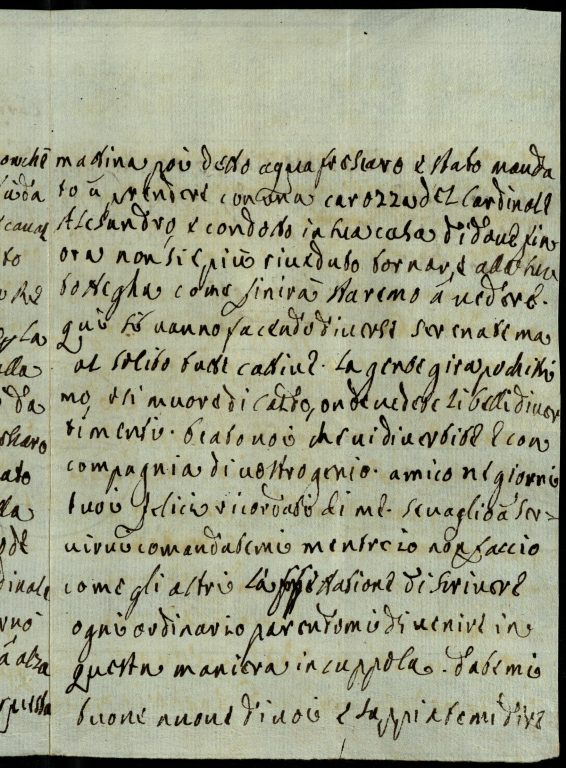 matina poi detto aquafrescaro è stato manda
to à prendere con una carozza del Cardinale
Alesandro, e condoto in sua casa di dove fin
ora non si è più riveduto tornare, alle sue
boteghe come finirà staremo à vedere.
quì si vanno facendo diverse serenate ma
al solito tutte cative. la gente gira pochissi
mo, e si muore di caldo, onde vedete li belli diver
timenti. beato voi che vi divertite e con
compagnia di vostro genio. amico ne giorni
tuoi felici ricordati di me. se vaglio à ser-
virvi comandatemi mentre io non faccio
come gli altri di scrivere
ogni ordinario parendomi di venire in
questa maniera in cuppola. datemi
buone nuove di voi e sappiatemi dire